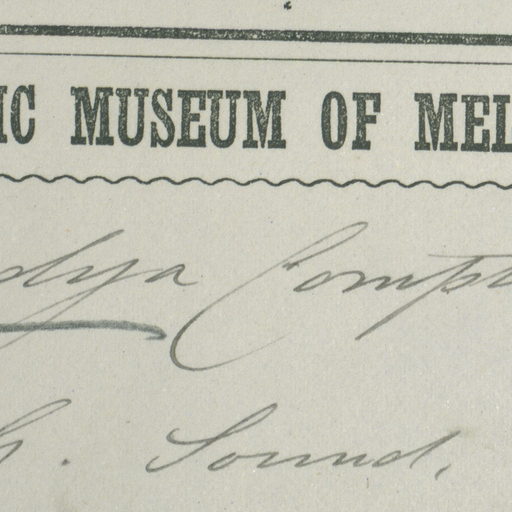 IC MUSEUM OF MEL
dya Compt
G. Sound.